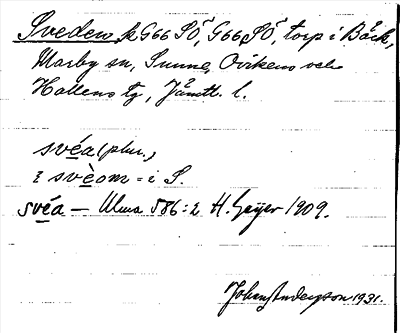 Sveden, k G66 SÖ, G66 SÖ, torp i Bäck,
Marby sn, Sunne, Ovikens och
Hallens tg, Jämtl. l.
svéa (plur.,
i svèom = i S.
svéa — Ulma 586:2 H. Geijer 1909.
Johan Anderzson 1931.